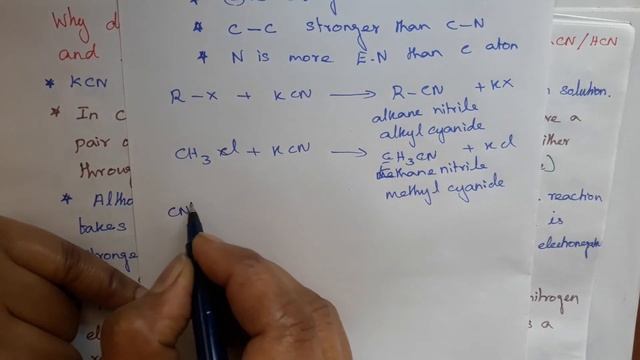 Why d
and
* KCN
* In C
pair o
throug
* Altho
takes
stronge
* C-C stronger than C-N
* N is more E.N than C atom
R-X + KCN → R-CN + KX
alkane nitrile
alkyl cyanide
CH3 Cl + KCN → CH3CN + KCl
methane nitrile
methyl cyanide
CN
KCN/HCN
solution.
ve a
ither
reaction
is
electronegati
nitrogen
s a